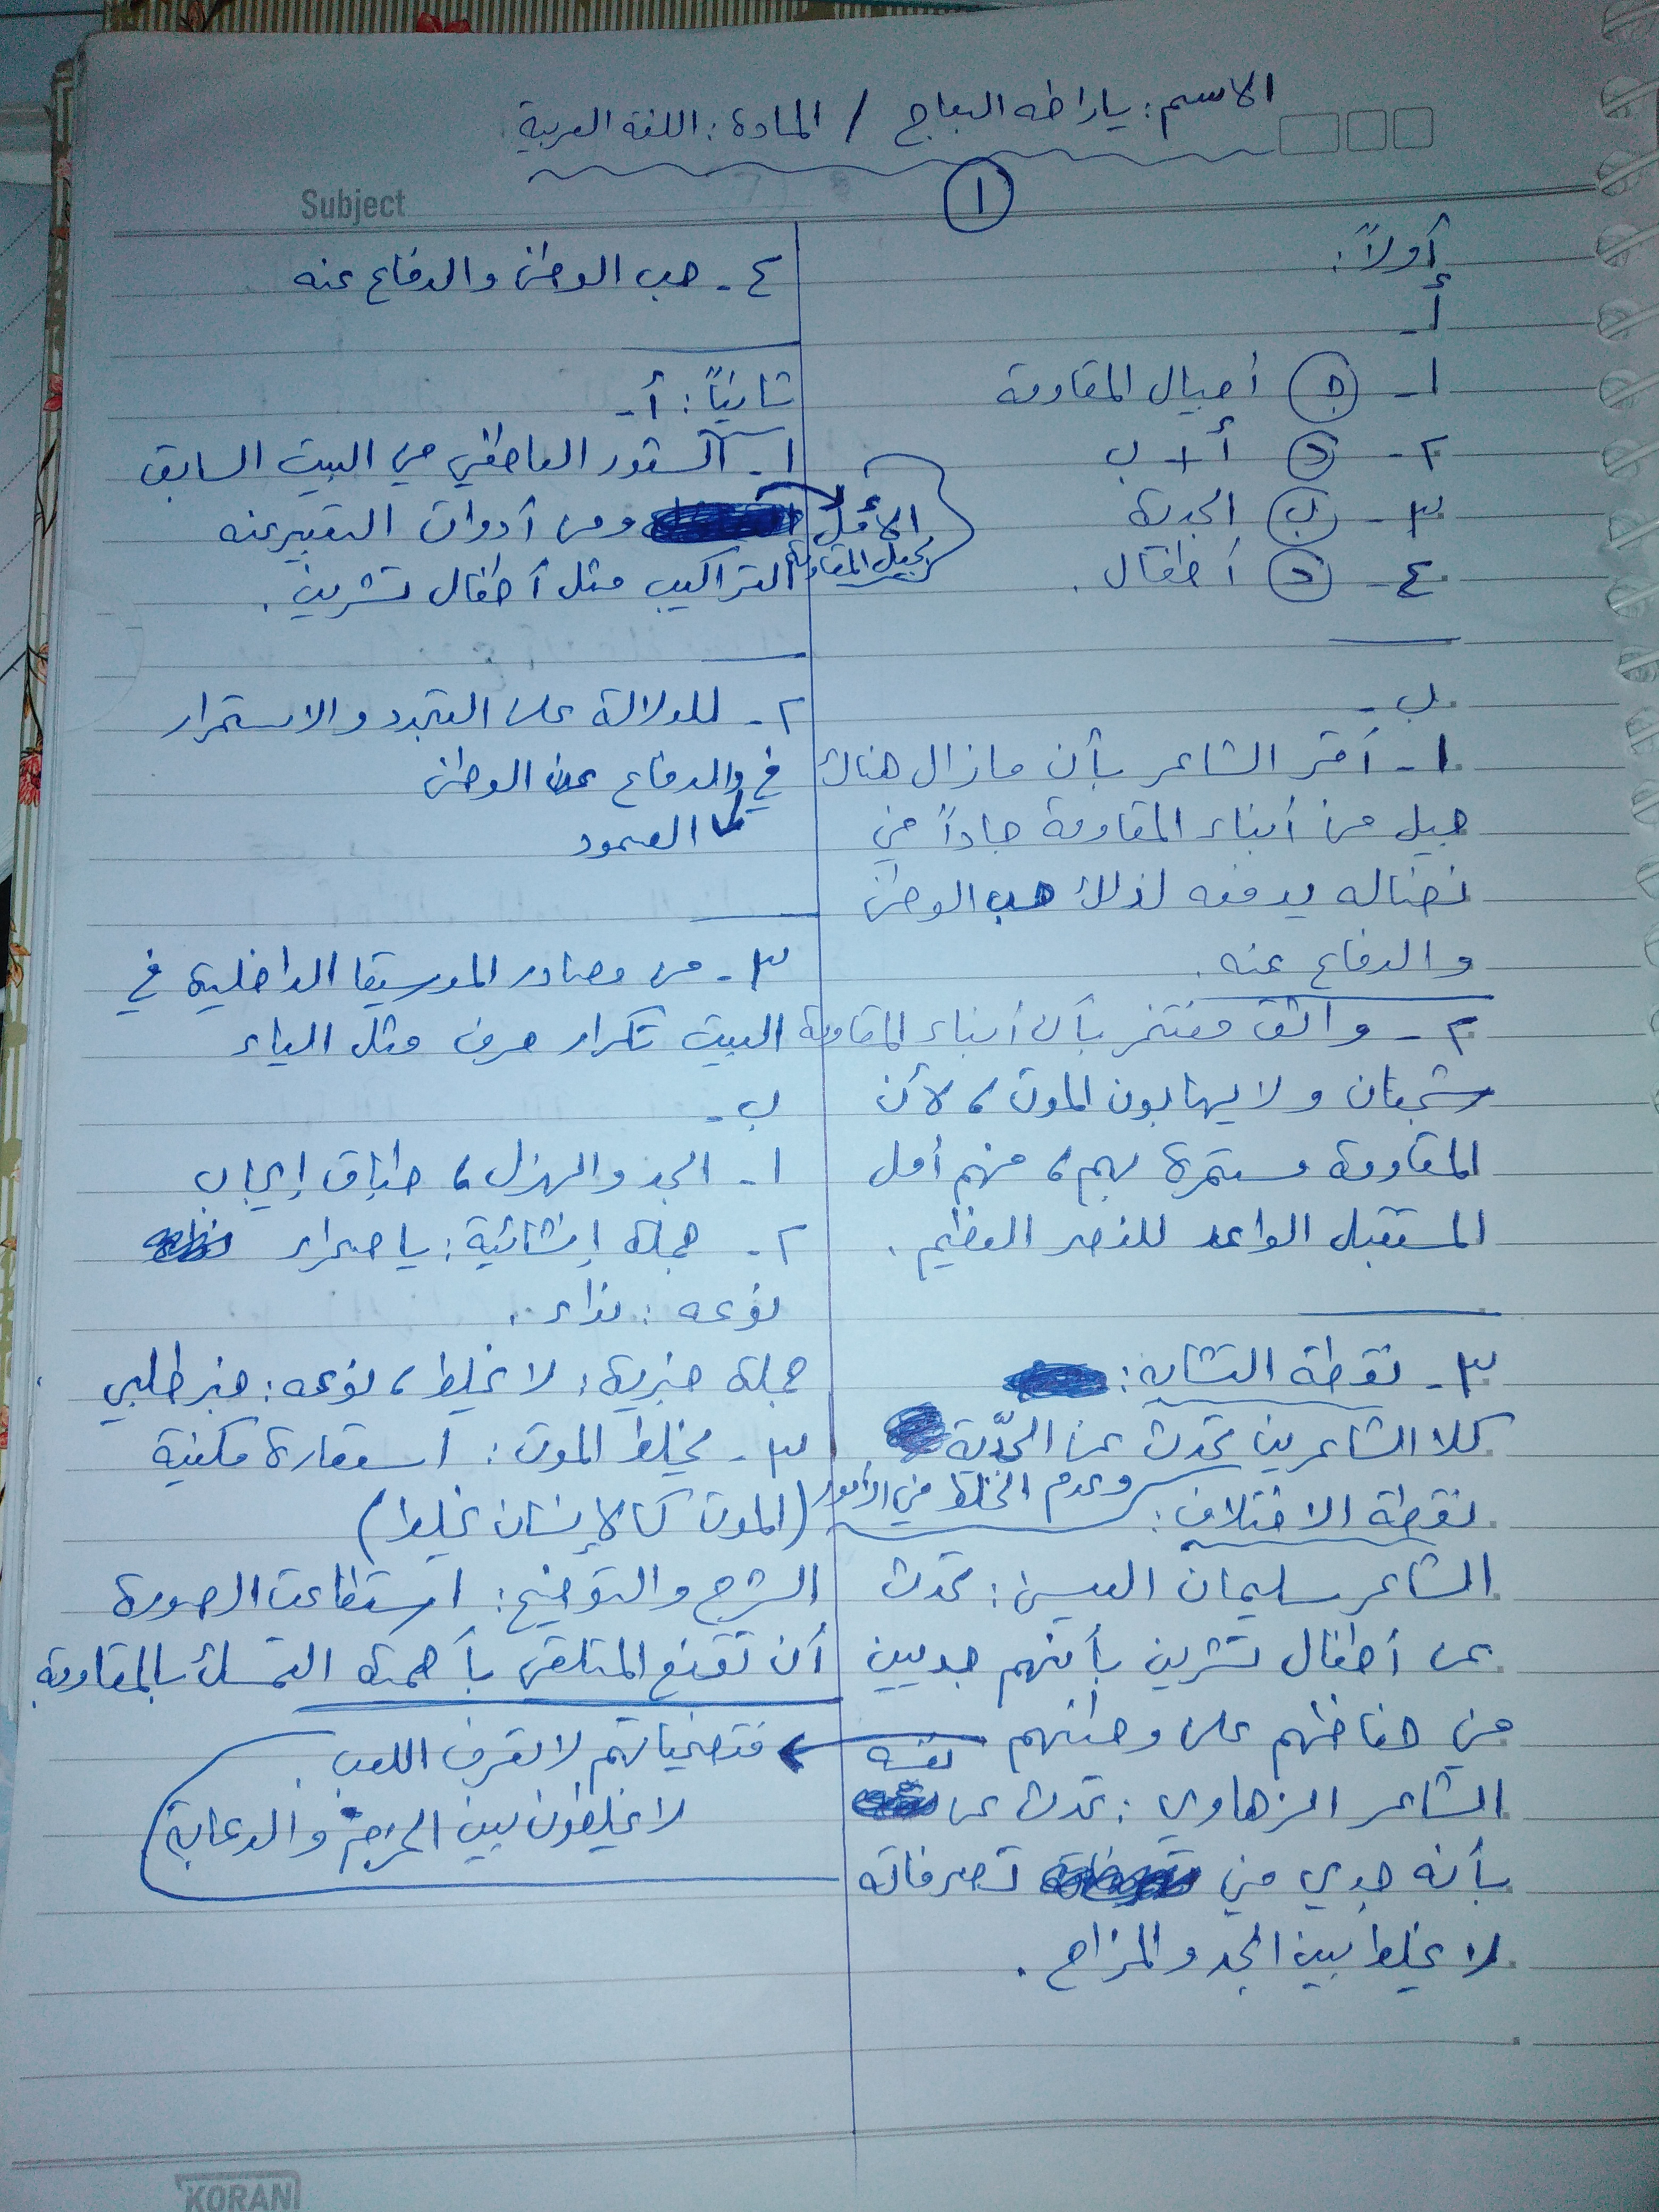 الاسم: يارا طه البعاج / المادة: اللغة العربية
١
Subject
أولاً:
أ-
١- ج أجيال المقاومة
٢- د أ + ب
٣- ب الجدية
٤- د أطفال.
ب-
١- أقر الشاعر بأن مازال هناك
جيل من أبناء المقاومة جاداً في
نضاله يدفعه لذلك حب الوطن
والدفاع عنه.
٢- واثق مفتخر بأن أبناء المقاومة
شجعان ولا يهابون الموت، لأن
المقاومة مستمرة بهم، فهم أمل
المستقبل الواعد للنصر العظيم.
٣- نقطة التشابه:
كلا الشاعرين تحدث عن الجدّية
وعدم الخلط في الأمور
نقطة الاختلاف:
الشاعر سليمان العيسى: تحدث
عن أطفال تشرين بأنهم جديين
في حفاظهم على وطنهم
الشاعر الزهاوي: تحدث عن نفسه
بأنه جدي في تصرفاته
لا يخلط بين الجد والمزاح.
٤- حب الوطن والدفاع عنه
ثانياً: أ-
١- الشعور العاطفي في البيت السابق
الأمل بجيل المقاومة ومن أدوات التعبير عنه
التراكيب مثل أطفال تشرين.
٢- للدلالة على التجدد والاستمرار
في والدفاع عن الوطن
الصمود
٣- من مصادر الموسيقا الداخلية في
البيت تكرار حرف مثل الياء
ب-
١- الجد والهزل، طباق إيجاب
٢- جملة إنشائية: يا صحراء
نوعه: نداء.
جملة خبرية: لا يخلط، نوعه: خبر طلبي
٣- يخلط الموت: استعارة مكنية
(الموت كالإنسان يخلط)
الشرح والتوضيح: استطاعت الصورة
أن تقنع المتلقي بأهمية التمسك بالمقاومة
فتضحياتهم لا تعرف اللعب
لا يخلطون بين المزح والدعابة
KORAN